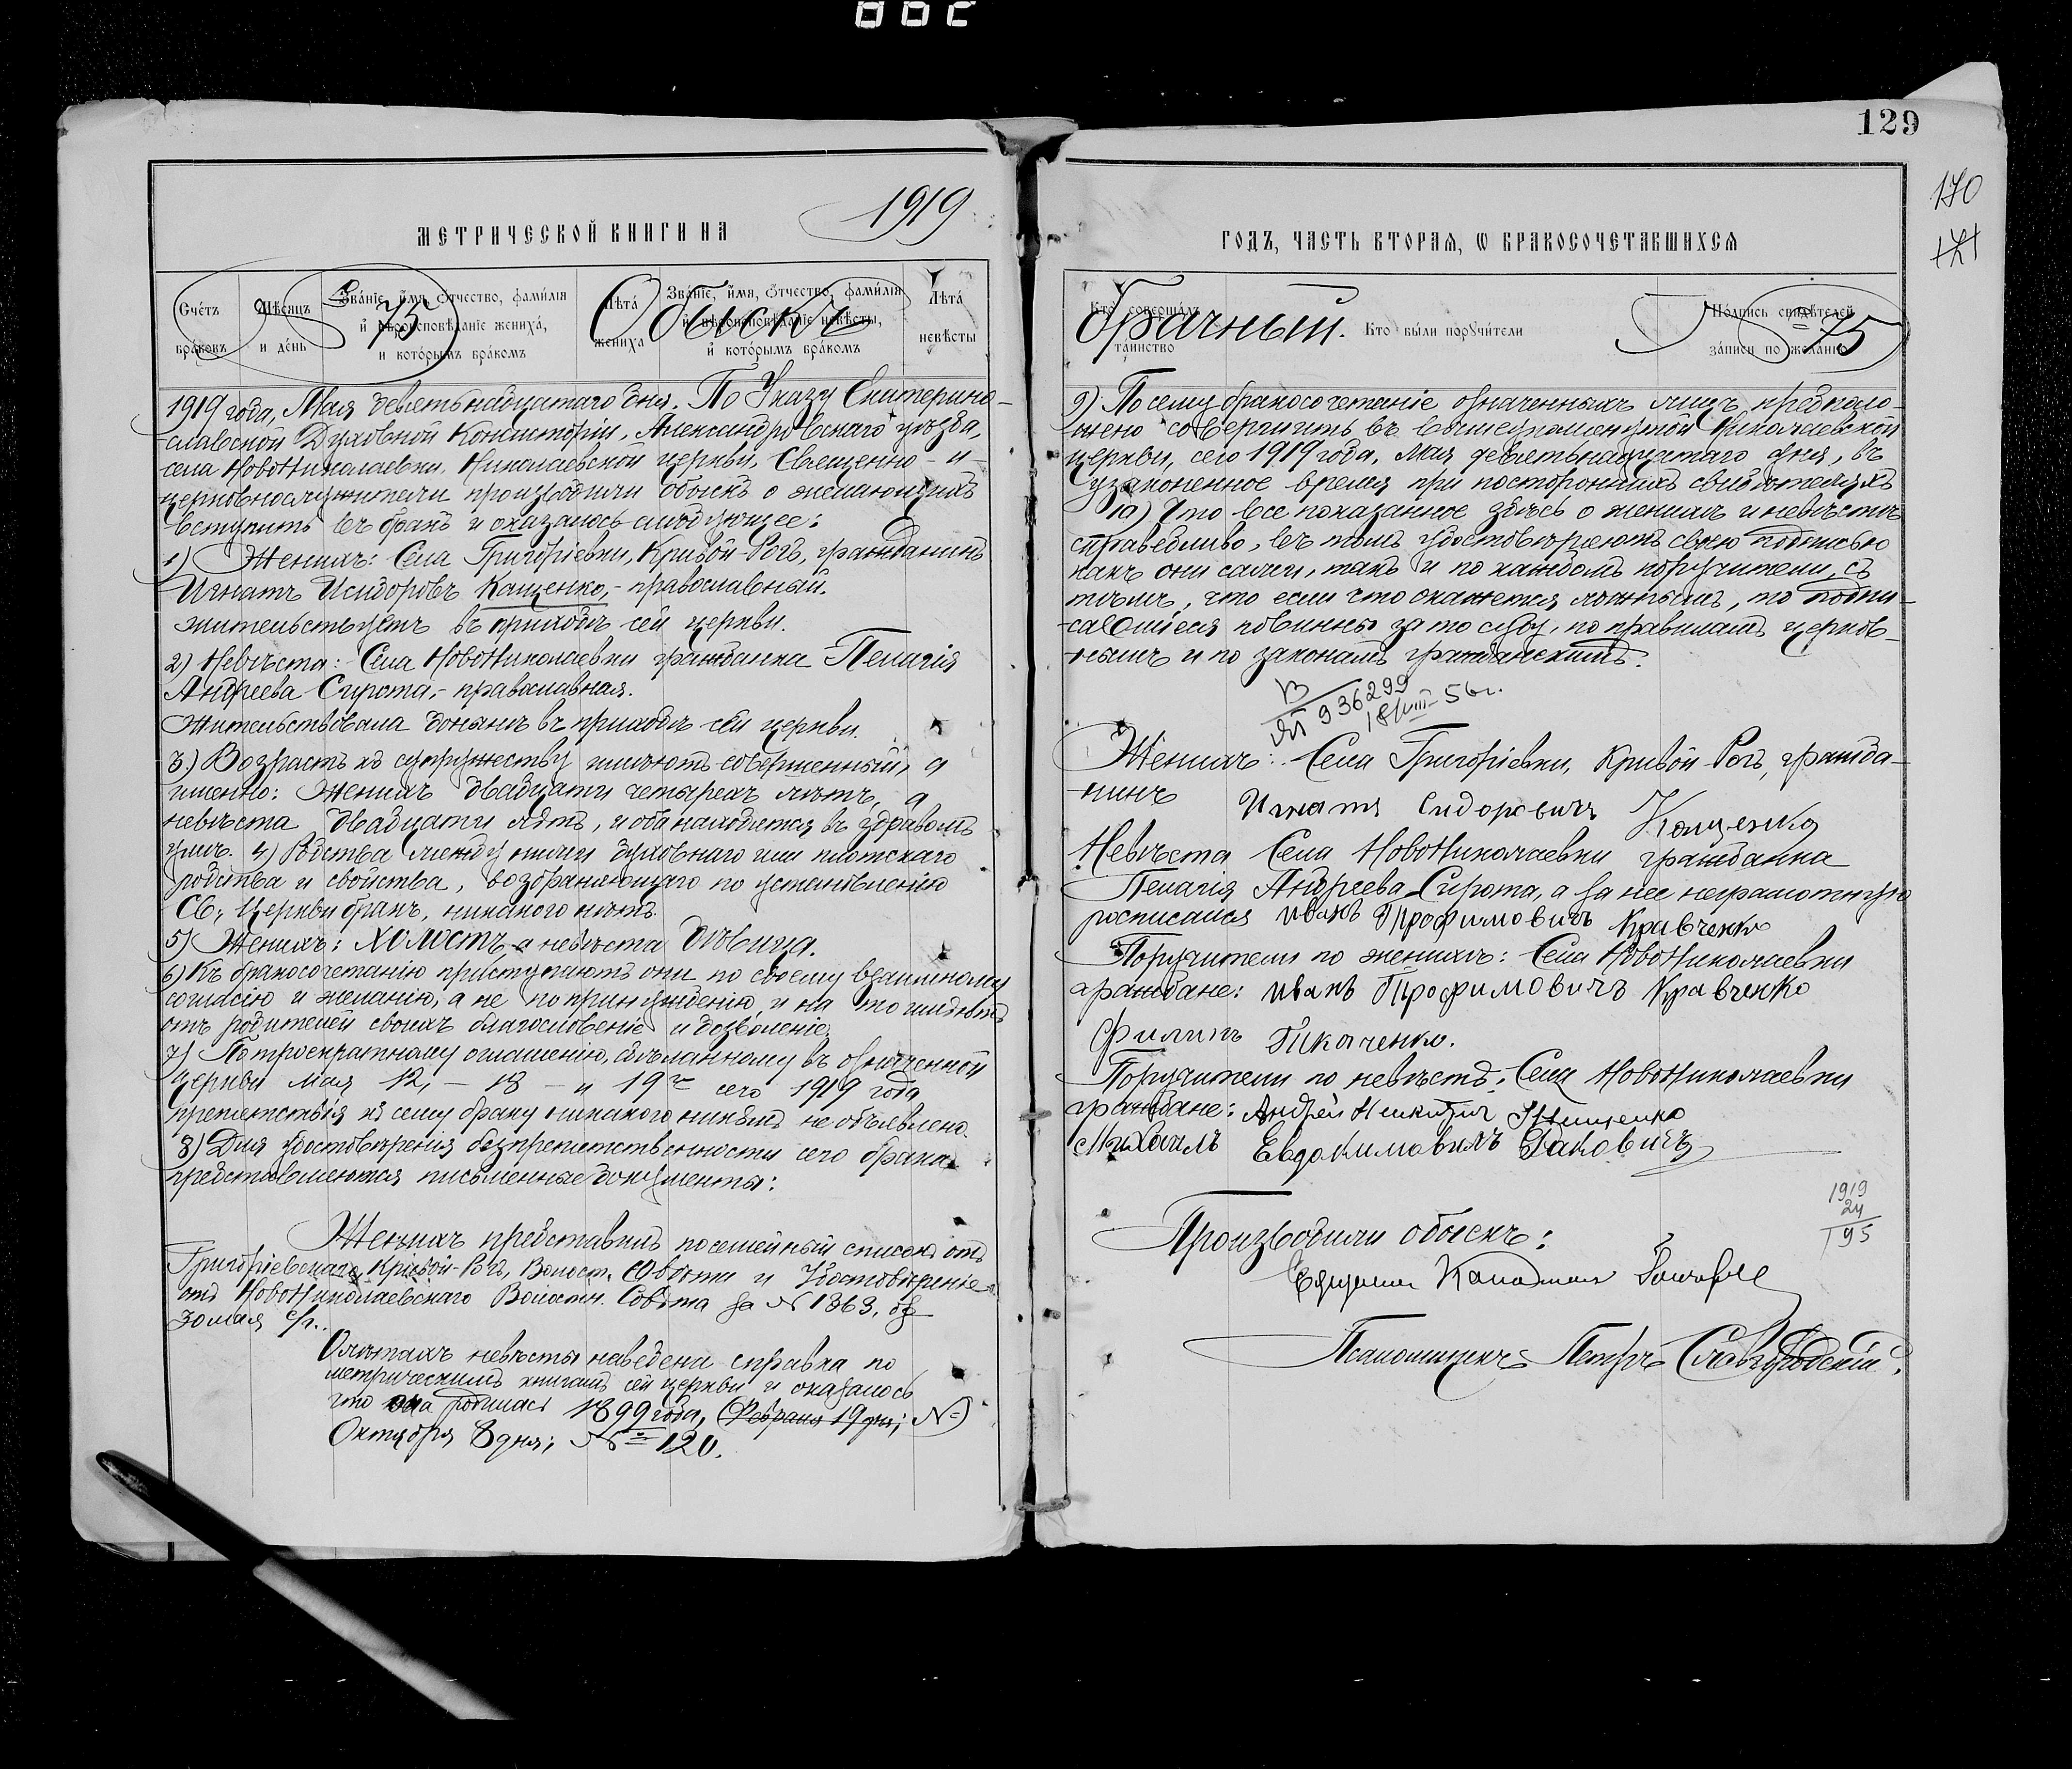 002
129
170
171
МЕТРИЧЕСКОЙ КНИГИ НА 1919
Обыскъ 75
Счетъ браковъ
Мѣсяцъ и день
Званіе, имя, отчество, фамилія и вѣроисповѣданіе жениха, и которымъ бракомъ
Лѣта жениха
Званіе, имя, отчество, фамилія и вѣроисповѣданіе невѣсты, и которымъ бракомъ
Лѣта невѣсты
1919 года, Мая девятьнадцатаго дня. По Указу Екатерино-
славской Духовной Консисторіи, Александровскаго уѣзда,
села НовоНиколаевки, Николаевской церкви, Священно- и-
церковнослужители производили обыскъ о желающихъ
вступить въ бракъ и оказалось слѣдующее:
1) Женихъ: Села Григоріевки, Кривой-Рогъ, гражданинъ
Игнатъ Исидоровъ Кащенко,- православный.
Жительствуетъ въ приходѣ сей церкви.
2) Невѣста: Села НовоНиколаевки гражданка Пелагія
Андреева Сирота,- православная.
Жительствовала донынѣ въ приходѣ сей церкви.
3) Возрастъ къ супружеству имѣютъ совершенный, а
именно: женихъ двадцати четырехъ лѣтъ, а
невѣста двадцати лѣтъ, и оба находятся въ здравомъ
умѣ. 4) Родства между ними духовнаго или плотскаго
родства и свойства, возбраняющаго по установленію
Св. Церкви бракъ, никакого нѣтъ.
5) Женихъ: холостъ, а невѣста дѣвица.
6) Къ бракосочетанію приступаютъ они по своему взаимному
согласію и желанію, а не по принужденію, и на то имѣютъ
отъ родителей своихъ благословеніе и дозволеніе.
7) По троекратному оглашенію, сдѣланному въ означенной
церкви мая 12, - 18 - и 19го сего 1919 года
препятствія къ сему браку никакого никѣмъ не объявлено.
8) Для удостовѣренія безпрепятственности сего брака
представляются письменные документы:
Женихъ представилъ посемейный списокъ отъ
Григоріевскаго, Кривой-Рогъ, Волост. Совѣта и Удостовѣреніе
отъ НовоНиколаевскаго Волостн. Совѣта за № 1363,
мая с/г.
О лѣтахъ невѣсты наведена справка по
метрическимъ книгамъ сей церкви и оказалось
что она родилась 1899 года, (Февраля 19 дня; №)
Октября 8 дня; № 120.
ГОДЪ, ЧАСТЬ ВТОРАЯ, О БРАКОСОЧЕТАВШИХСЯ
Брачный. 75
Кто совершалъ таинство
Кто были поручители
Подпись свидѣтелей записи по желанію
9) По сему бракосочетаніе означенныхъ лицъ предполо-
жено совершить въ вышеупомянутой Николаевской
церкви, сего 1919 года, мая девятьнадцатаго дня, въ
узаконенное время при постороннихъ свидѣтеляхъ
10) Что все показанное здѣсь о женихѣ и невѣстѣ
справедливо, въ томъ удостовѣряютъ своею подписью
какъ они сами, такъ и по каждомъ поручители, съ
тѣмъ, что если что окажется ложнымъ, то подпи-
савшіеся повинны за то суду, по правиламъ церков-
нымъ и по законамъ гражданскимъ.
936299
18/VIII-56 г.
Женихъ: Села Григоріевки, Кривой-Рогъ, гражда-
нинъ Игнатъ Сидоровичъ Кащенко
Невѣста Села НовоНиколаевки гражданка
Пелагія Андреева Сирота, а за нее неграмотную
росписался Иванъ Трофимовичъ Кравченко
Поручители по женихѣ: Села НовоНиколаевки
граждане: Иванъ Трофимовичъ Кравченко
Филипъ Ткаченко.
Поручители по невѣстѣ: Села НовоНиколаевки
граждане: Андрей
Михаилъ Евдокимовичъ Даковичъ
1919
24
95
Производили обыскъ:
Псаломщикъ Петръ Славгородскій.